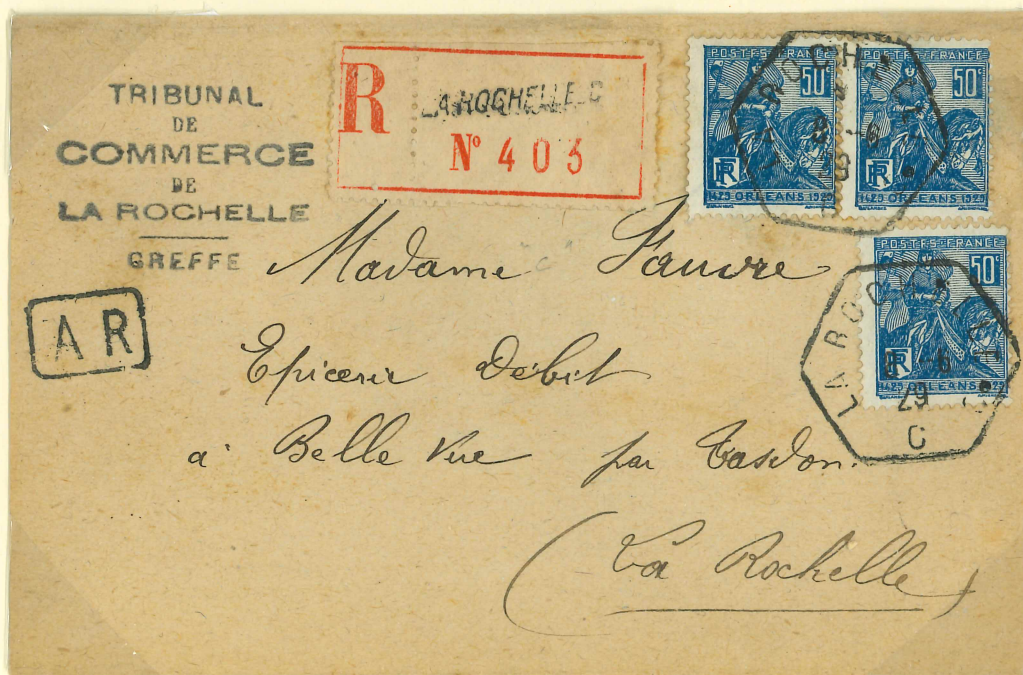 TRIBUNAL
DE
COMMERCE
DE
LA ROCHELLE
GREFFE
R
LA ROCHELLE.C
Nº 403
POSTES-FRANCE
50c
RF
1429 ORLEANS 1929
POSTES-FRANCE
50c
RF
1429 ORLEANS 1929
POSTES-FRANCE
50c
RF
1429 ORLEANS 1929
LA ROCHELLE
-6
29
C
A R
Madame Fauvre
Epicerie Débit
à Belle Vue par Tasdon.
(La Rochelle)